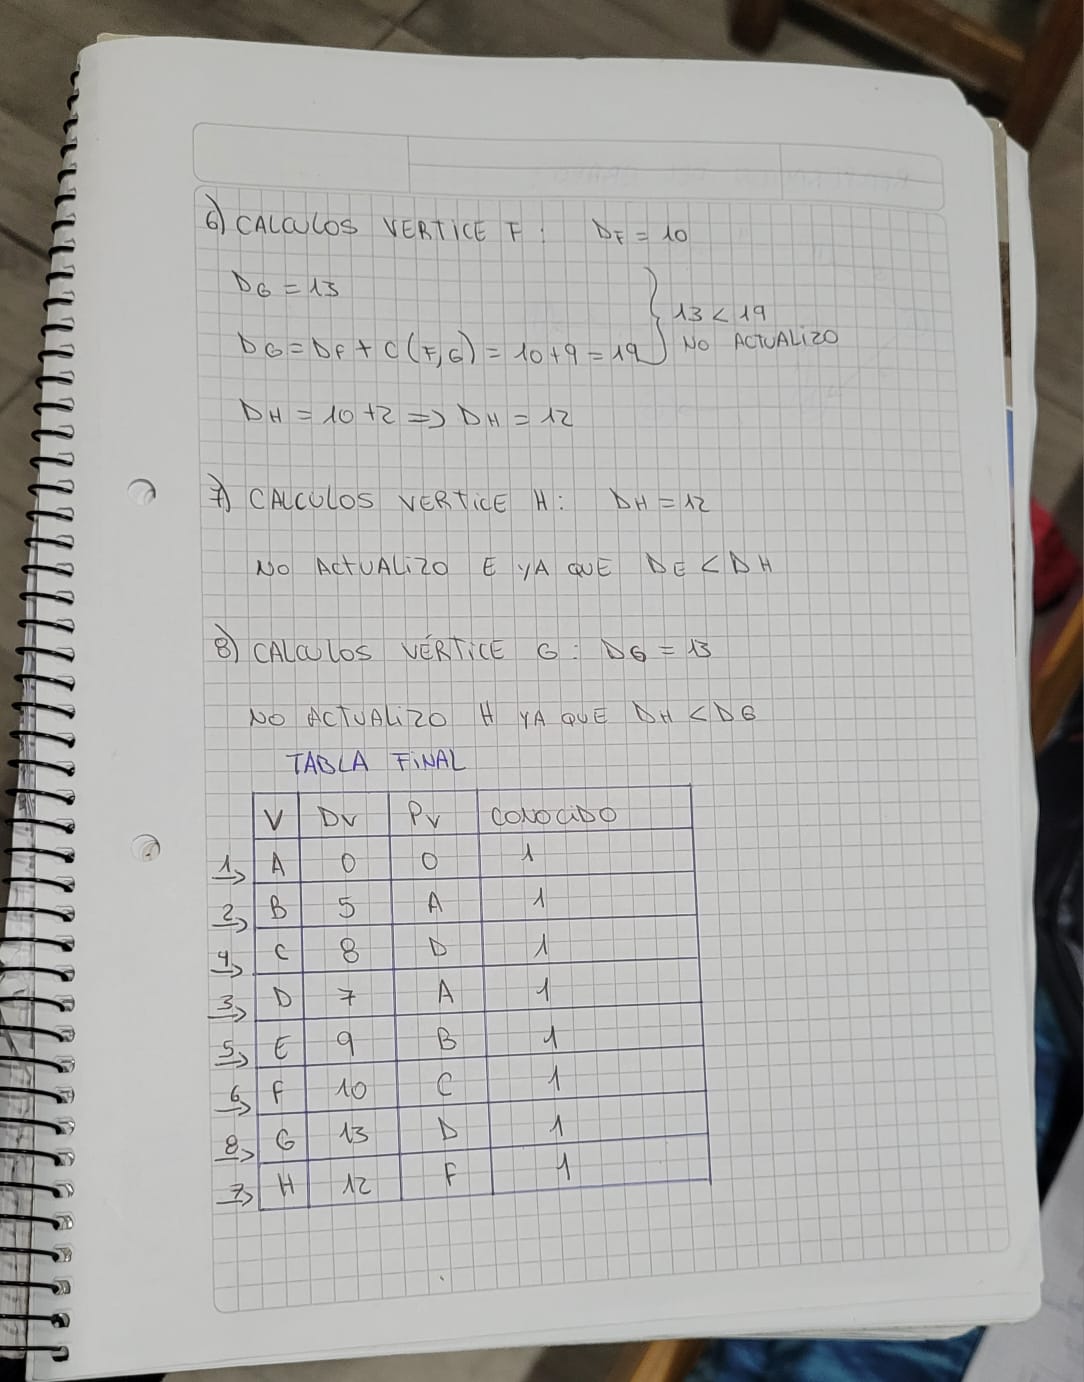 6) CALCULOS VERTICE F: DF = 10
DG = 13
13 < 19
DG = DF + C (F,G) = 10+9 = 19 NO ACTUALIZO
DH = 10+2 => DH = 12
7) CALCULOS VERTICE H: DH = 12
NO ACTUALIZO E YA QUE DE < DH
8) CALCULOS VÉRTICE G: DG = 13
NO ACTUALIZO H YA QUE DH < DG
TABLA FINAL
V DV PV CONOCIDO
1 A 0 0 1
2 B 5 A 1
4 C 8 D 1
3 D 7 A 1
5 E 9 B 1
6 F 10 C 1
8 G 13 D 1
7 H 12 F 1